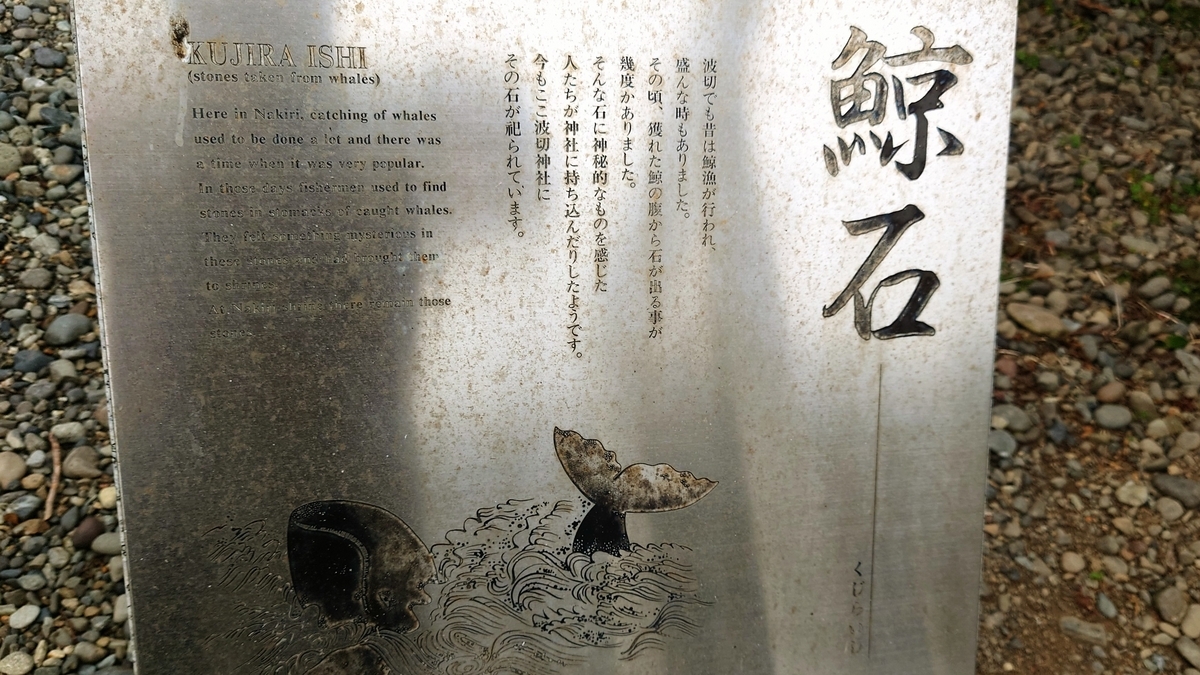 鯨石
くじらいし
波切でも昔は鯨漁が行われ、
盛んな時もありました。
その頃、獲れた鯨の腹から石が出る事が
幾度かありました。
そんな石に神秘的なものを感じた
人たちが神社に持ち込んだりしたようです。
今もここ波切神社に
その石が祀られています。
KUJIRA ISHI
(stones taken from whales)
Here in Nakiri, catching of whales
used to be done a lot and there was
a time when it was very popular.
In those days fishermen used to find
stones in stomacks of caught whales.
They felt something mysterious in
these stones and had brought them
to shrines.
At Nakiri shrine there remain those
stones.